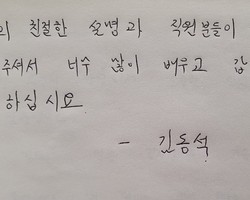 의 친절한 설명과 직원분들이
주셔서 너무 많이 배우고 갑
하십시요
- 김동석